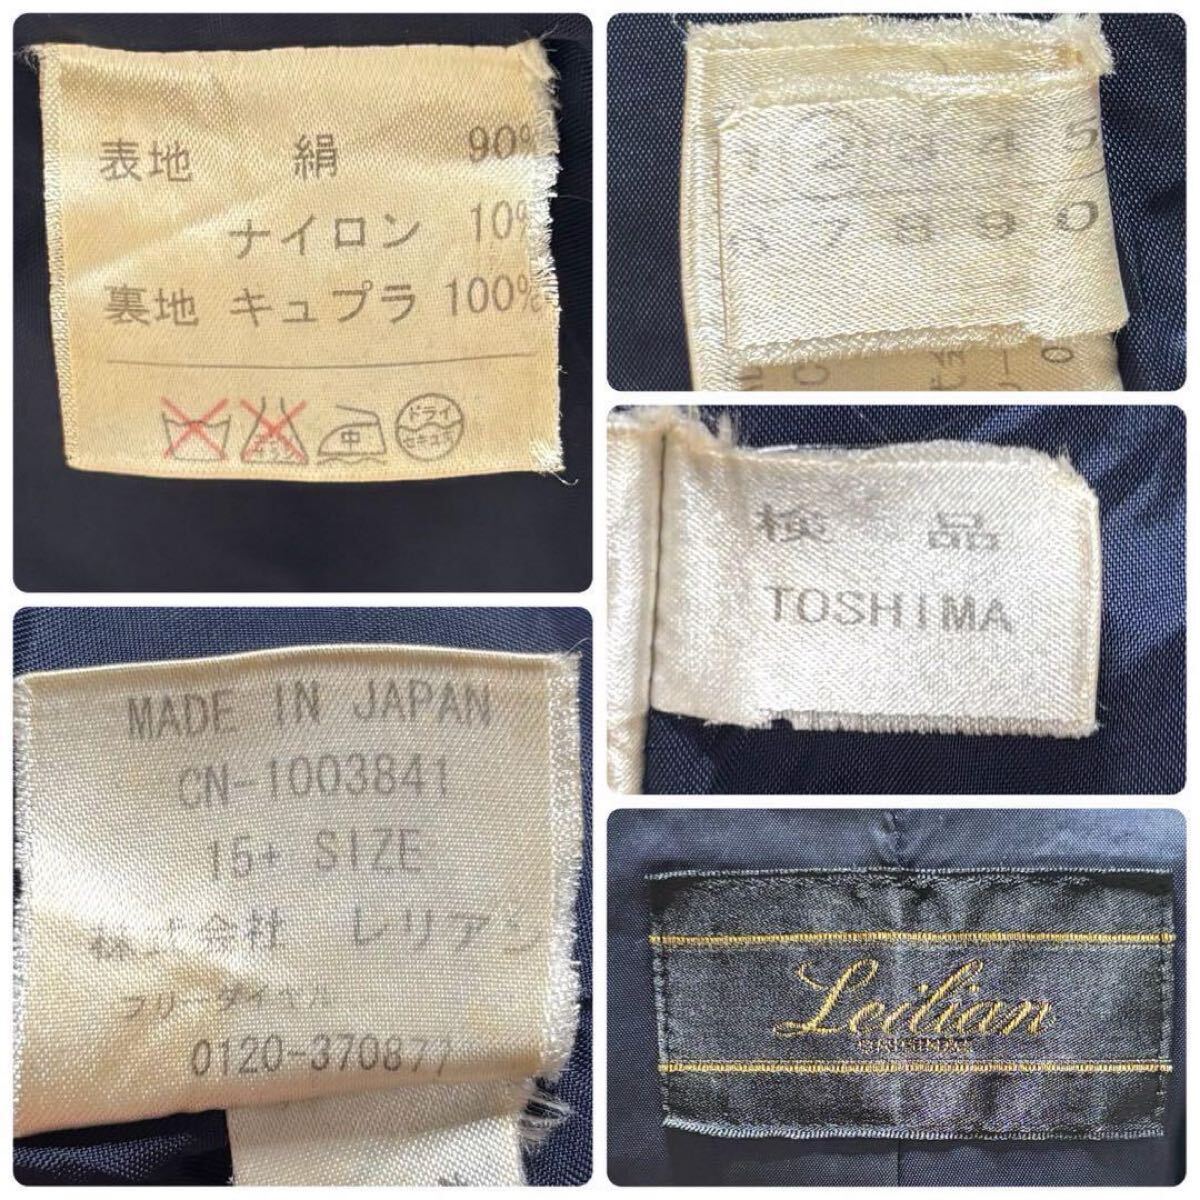 表地 絹 90%
ナイロン 10%
裏地 キュプラ 100%
中
ドライ
セキユ系
3 4 5
7 8 9 0
検 品
TOSHIMA
MADE IN JAPAN
CN-1003841
15+ SIZE
株式会社 レリアン
フリーダイヤル
0120-370877
Leilian